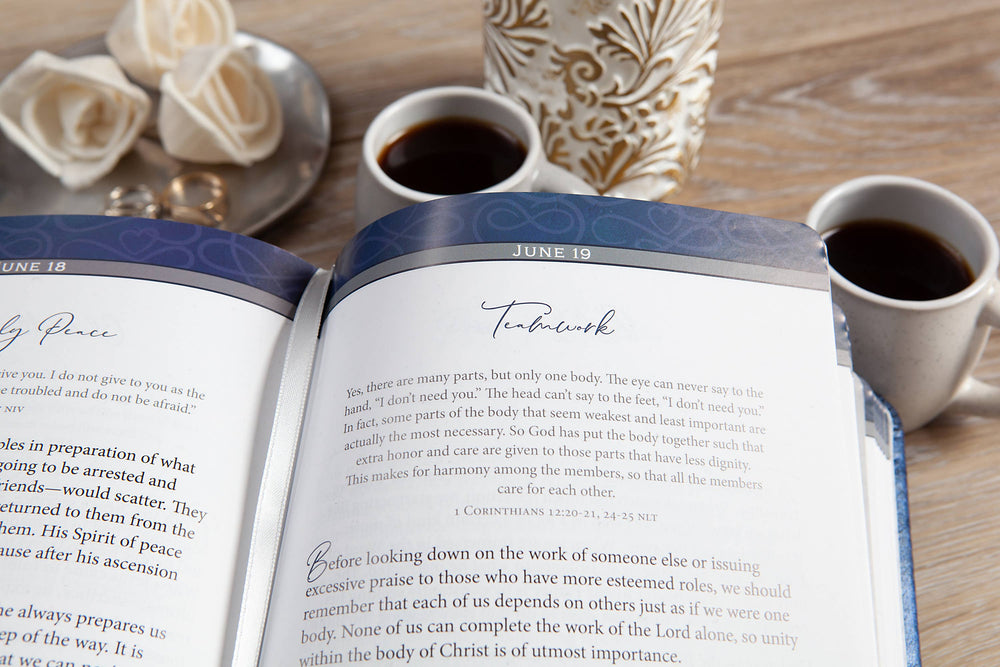 UNE 18
ly Peace
ive you. I do not give to you as the
e troubled and do not be afraid.”
NIV
ples in preparation of what
going to be arrested and
riends—would scatter. They
returned to them from the
hem. His Spirit of peace
ause after his ascension
he always prepares us
ep of the way. It is
at we can
JUNE 19
Teamwork
Yes, there are many parts, but only one body. The eye can never say to the
hand, “I don’t need you.” The head can’t say to the feet, “I don’t need you.”
In fact, some parts of the body that seem weakest and least important are
actually the most necessary. So God has put the body together such that
extra honor and care are given to those parts that have less dignity.
This makes for harmony among the members, so that all the members
care for each other.
1 CORINTHIANS 12:20-21, 24-25 NLT
Before looking down on the work of someone else or issuing
excessive praise to those who have more esteemed roles, we should
remember that each of us depends on others just as if we were one
body. None of us can complete the work of the Lord alone, so unity
within the body of Christ is of utmost importance.